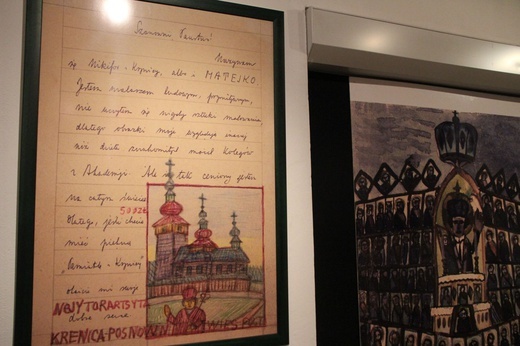 Szanowni Państwo
Nazywam
się Nikifor - Krynicy, albo - MATEJKO
Jestem malarzem ludowym, prymitywnym,
nie uczyłem się nigdy sztuki malowania,
dlatego obrazki moje wyglądają inaczej
niż dzieła znakomitych moich Kolegów
z Akademji Ale i tak ceniony jestem
na całym świecie
Dlatego, jeśli chcecie
mieć piękną
"Pamiątkę - Krynicy"
dajcie mi swoje
dobre serce
NBJYTORARTSYTZ
KRENICA-POSNOWN